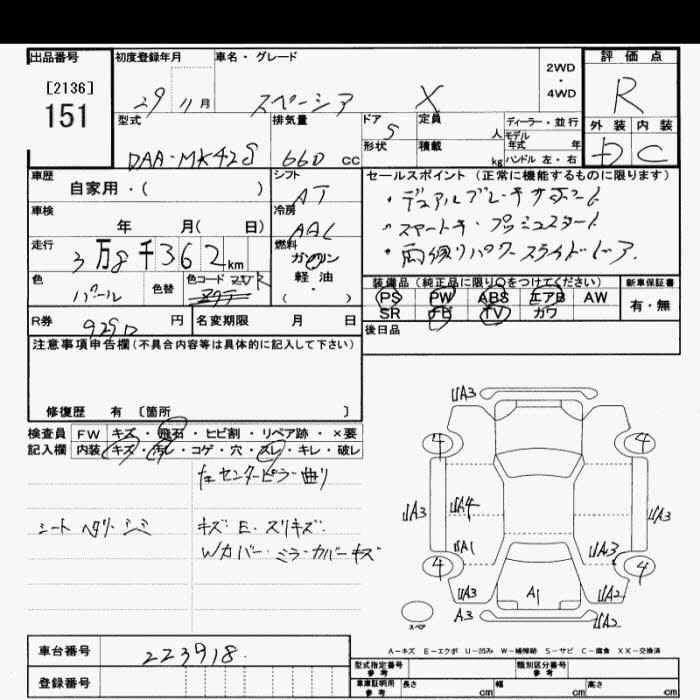 出品番号
[2136]
151
初度登録年月
29 11月
車名・グレード
スペーシア X
2WD
・
4WD
評価点
R
外装 内装
D C
型式
DAA-MK42S
排気量
660 cc
ドア
5
形状
定員
人
積載
kg
ディーラー・並行
モデル
年式 年
ハンドル 左・右
車歴
自家用・( )
シフト
AT
冷房
AAC
車検
年 月( 日)
走行
3万8千362km
燃料
ガソリン
軽油
・( )
色
パール
色替
色コード ZVR
R券
9290 円
名変期限 月 日
セールスポイント(正常に機能するものに限ります)
・デュアルブレーキサポート
・スマートキー・プッシュスタート
・両側パワースライドドア.
装備品(純正品に限り○をつけてください)
PS PW ABS エアB AW
SR ナビ TV カワ
新車保証書
有・無
後日品
注意事項申告欄(不具合内容等は具体的に記入して下さい)
修復歴 有 〔箇所 〕
検査員
記入欄
FW キズ・飛石・ヒビ割・リペア跡・×要
内装 キズ・汚レ・コゲ・穴・スレ・キレ・破レ
左センターピラー曲り
シート ヘタリ・シミ
キズ・E・スリキズ
Wカバー・ミラーカバーキズ
UA3
4 4
UA3 UA4 UA3
UA1 UA3
4 4
UA3 A1 UA3
A3 UA2
スペア
A-キズ E-エクボ U-凹み W-補修跡 S-サビ C-腐食 XX-交換済
車台番号
223918.
登録番号
型式指定番号
参考
類別区分番号
参考
車庫証明用
参考
長さ cm
幅 cm
高さ cm